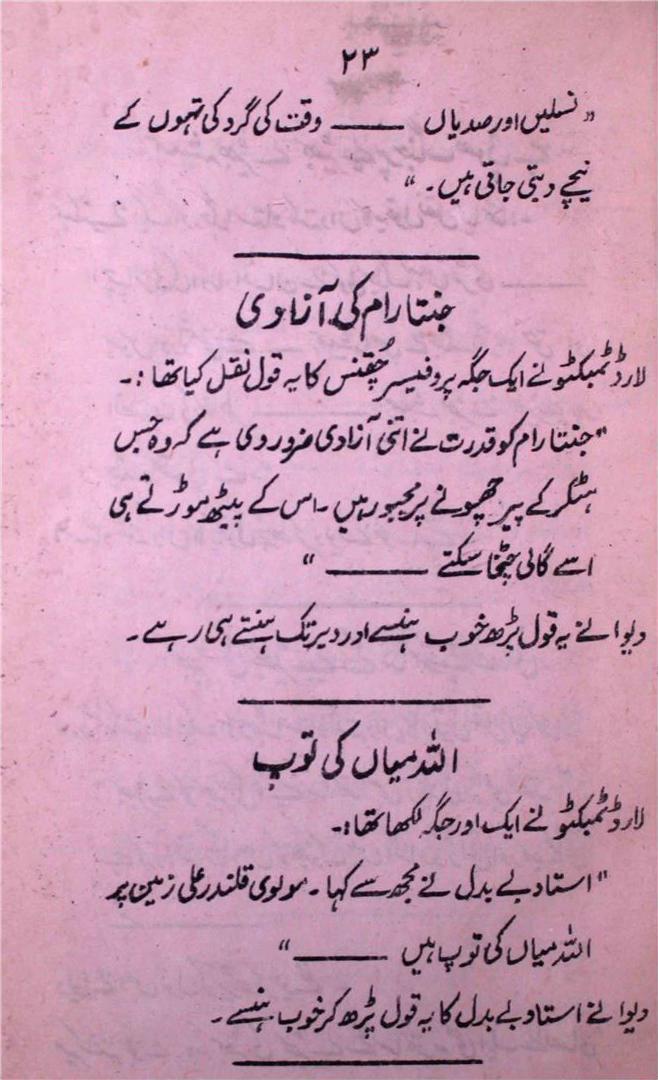 ۲۳
"نسلیں اور صدیاں ——— وقت کی گرد کی تہوں کے
نیچے دبتی جاتی ہیں۔"
جنتا رام کی آزادی
لارڈ ٹمبکٹو نے ایک جگہ پروفیسر چُقنس کا یہ قول نقل کیا تھا :۔
"جنتا رام کو قدرت نے اتنی آزادی ضرور دی ہے کہ وہ جس
ہٹلر کے پیر چھونے پر مجبور ہیں۔ اس کے پیٹھ موڑتے ہی
اسے گالی چٹخا سکتے ——— "
دیوانے یہ قول پڑھ خوب ہنسے اور دیر تک ہنستے ہی رہے۔
اللہ میاں کی توپ
لارڈ ٹمبکٹو نے ایک اور جگہ لکھا تھا :۔
"استاد بے بدل نے مجھ سے کہا۔ مولوی قلندر علی زمین پر
اللہ میاں کی توپ ہیں ——— "
دیوانے استاد بے بدل کا یہ قول پڑھ کر خوب ہنسے۔